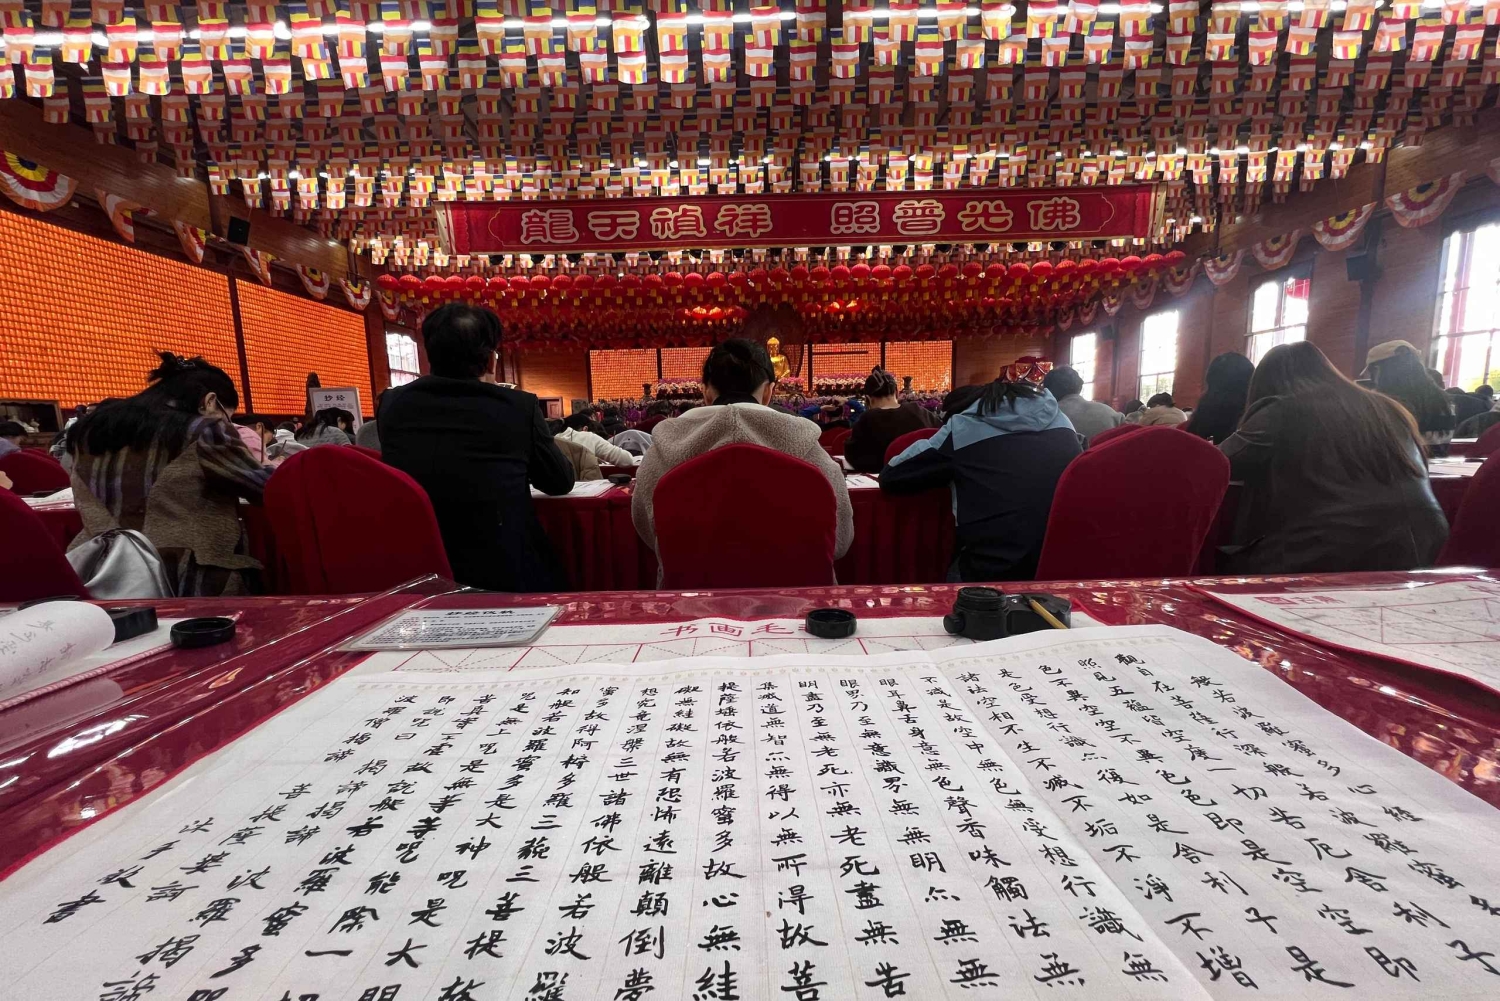 佛光普照 祥禎天龍
抄经
抄经仪轨
书画毛
般若波羅蜜多心經
觀自在菩薩行深般若波羅蜜多
照見五蘊皆空度一切苦厄舍利子
色不異空空不異色色即是空空即
是色受想行識亦復如是舍利子是
諸法空相不生不滅不垢不淨不增
不減是故空中無色無受想行識無
眼耳鼻舌身意無色聲香味觸法無
眼界乃至無意識界無無明亦無無
明盡乃至無老死亦無老死盡無苦
集滅道無智亦無得以無所得故菩
提薩埵依般若波羅蜜多故心無罣
礙無罣礙故無有恐怖遠離顛倒夢
想究竟涅槃三世諸佛依般若波羅
蜜多故得阿耨多羅三藐三菩提故
知般若波羅蜜多是大神呪是大明
呪是無上呪是無等等呪能除一切
苦真實不虛故說般若波羅蜜多呪
即說呪曰 揭諦揭諦 波羅揭諦
波羅僧揭諦 菩提薩婆訶
沐手敬書